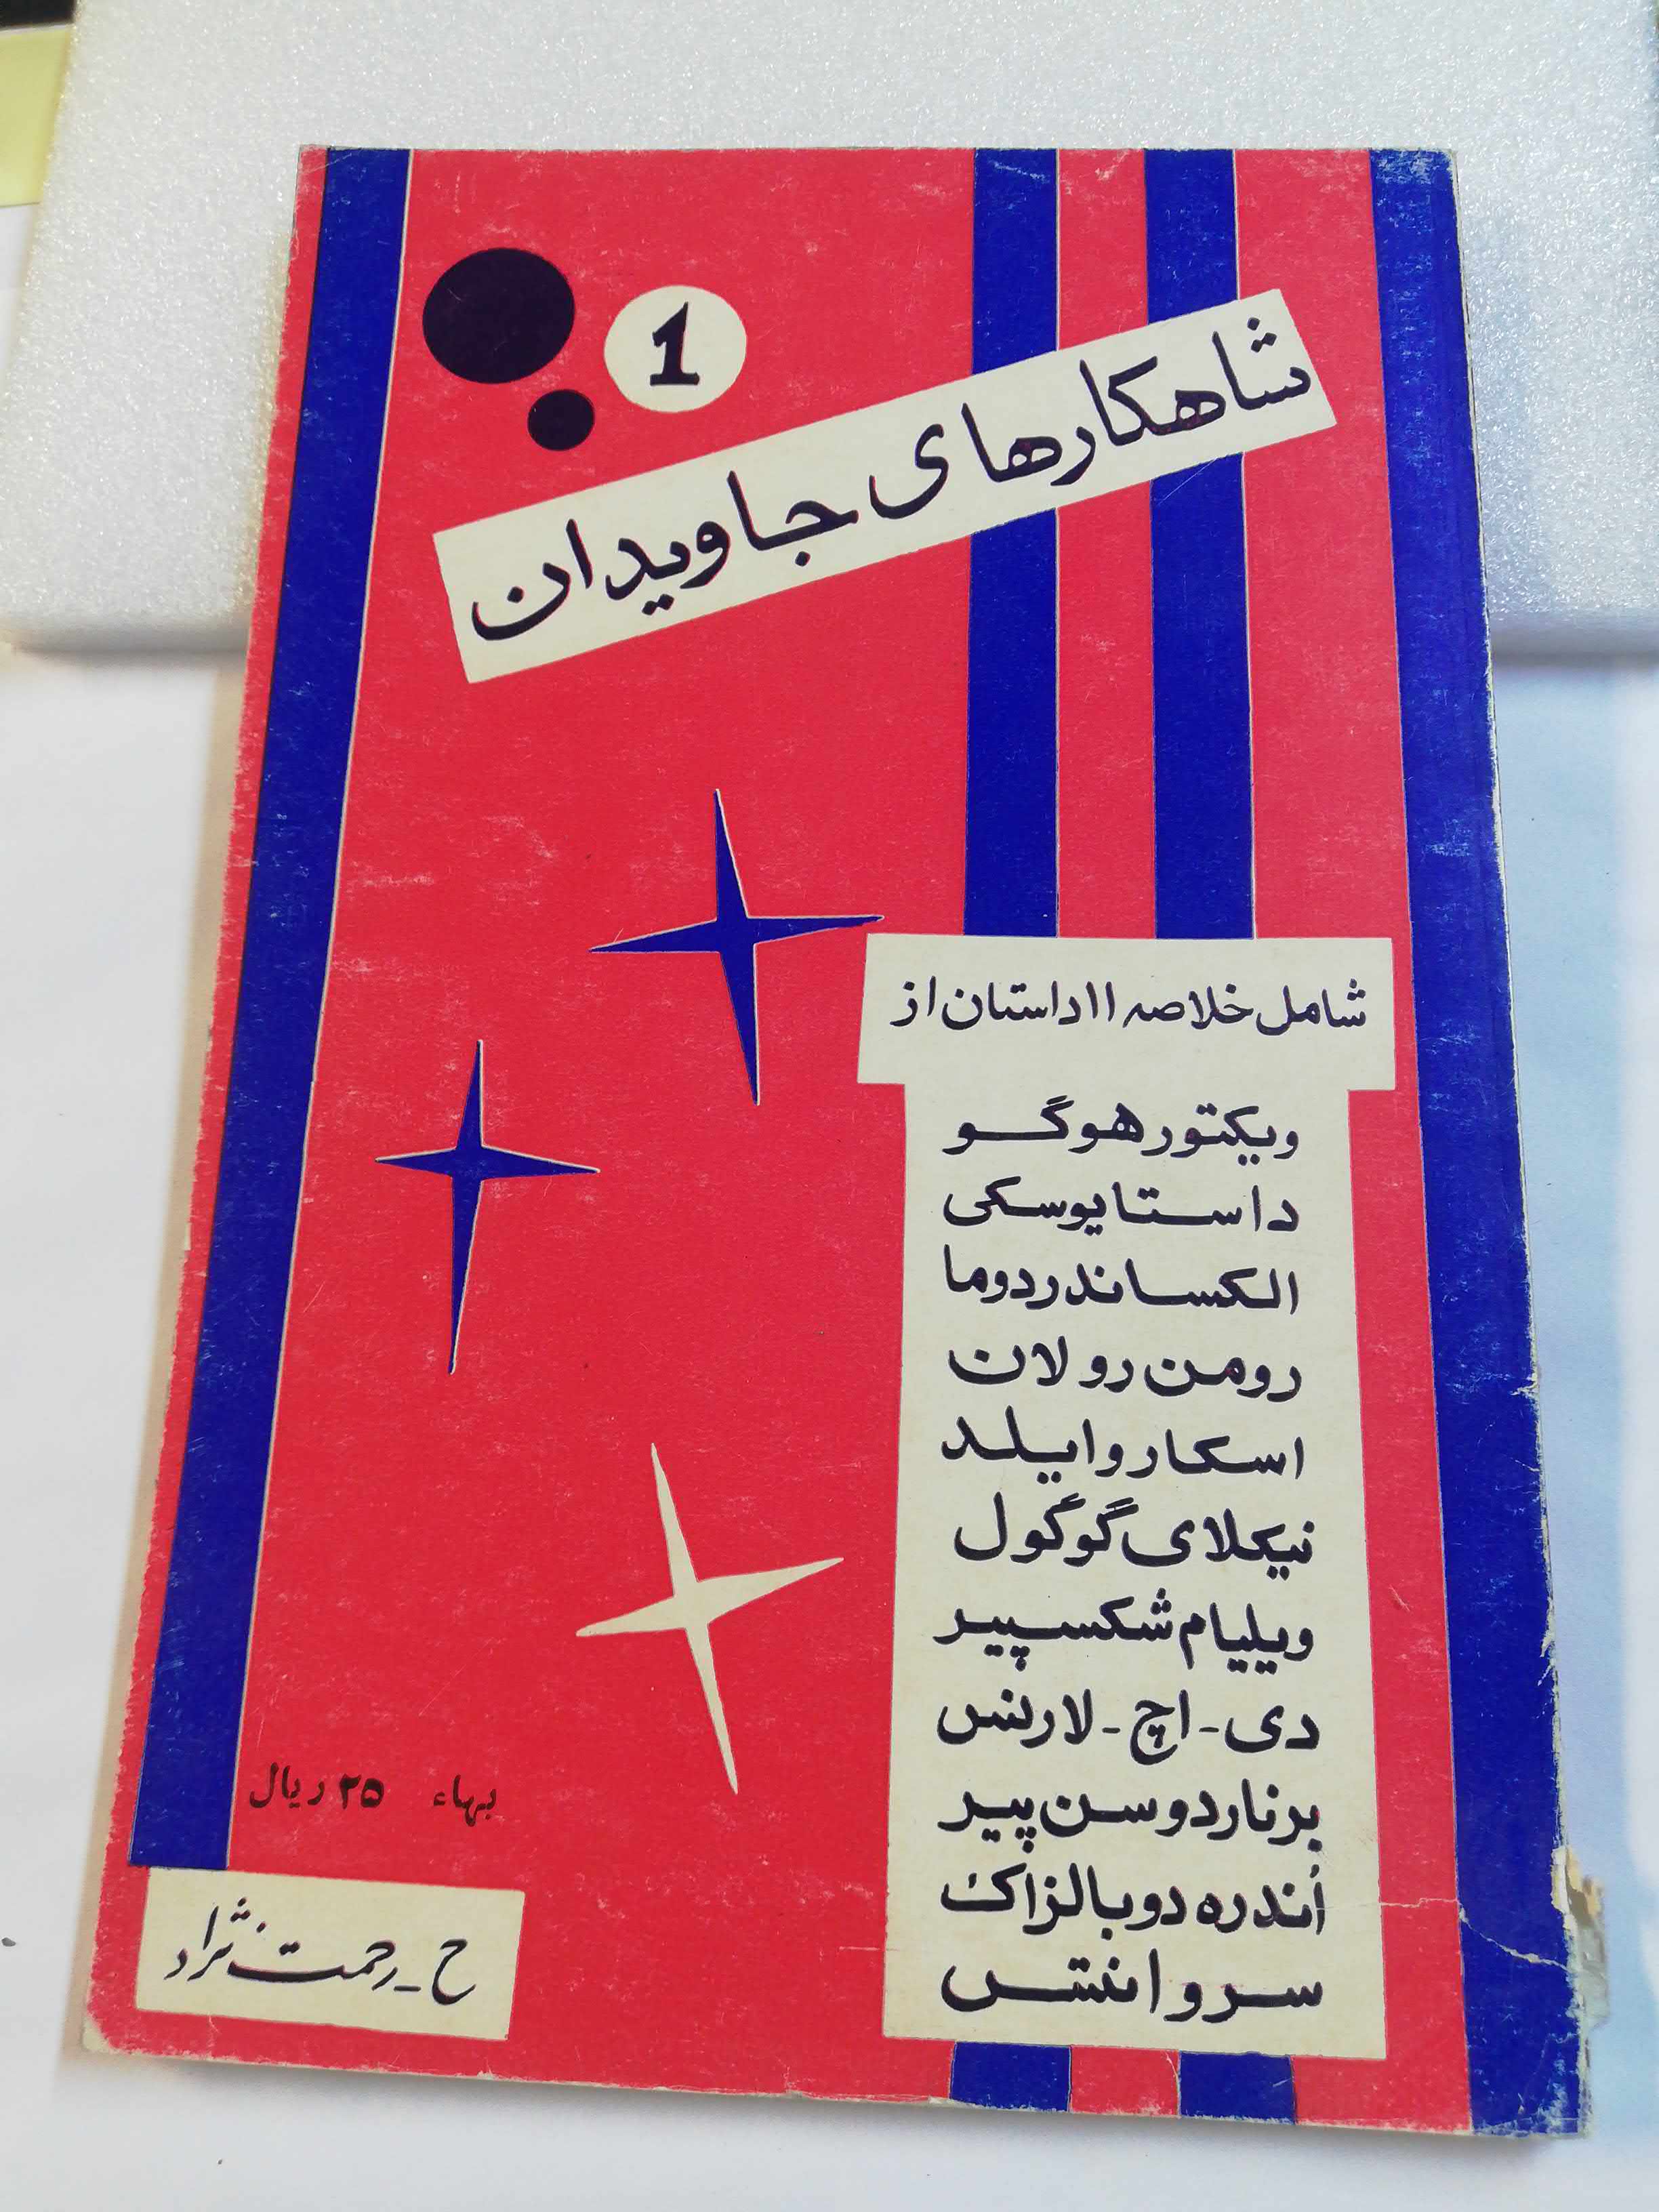 1
شاهکارهای جاویدان
شامل خلاصه ۱۱ داستان از
ویکتور هوگو
داستایوسکی
الکساندر دوما
رومن رولان
اسکار وایلد
نیکلای گوگول
ویلیام شکسپیر
دی - اچ - لارنس
برناردوسن پیر
اُندره دوبالزاک
سروانتس
بهاء ۲۵ ریال
ح - رحمت نژاد